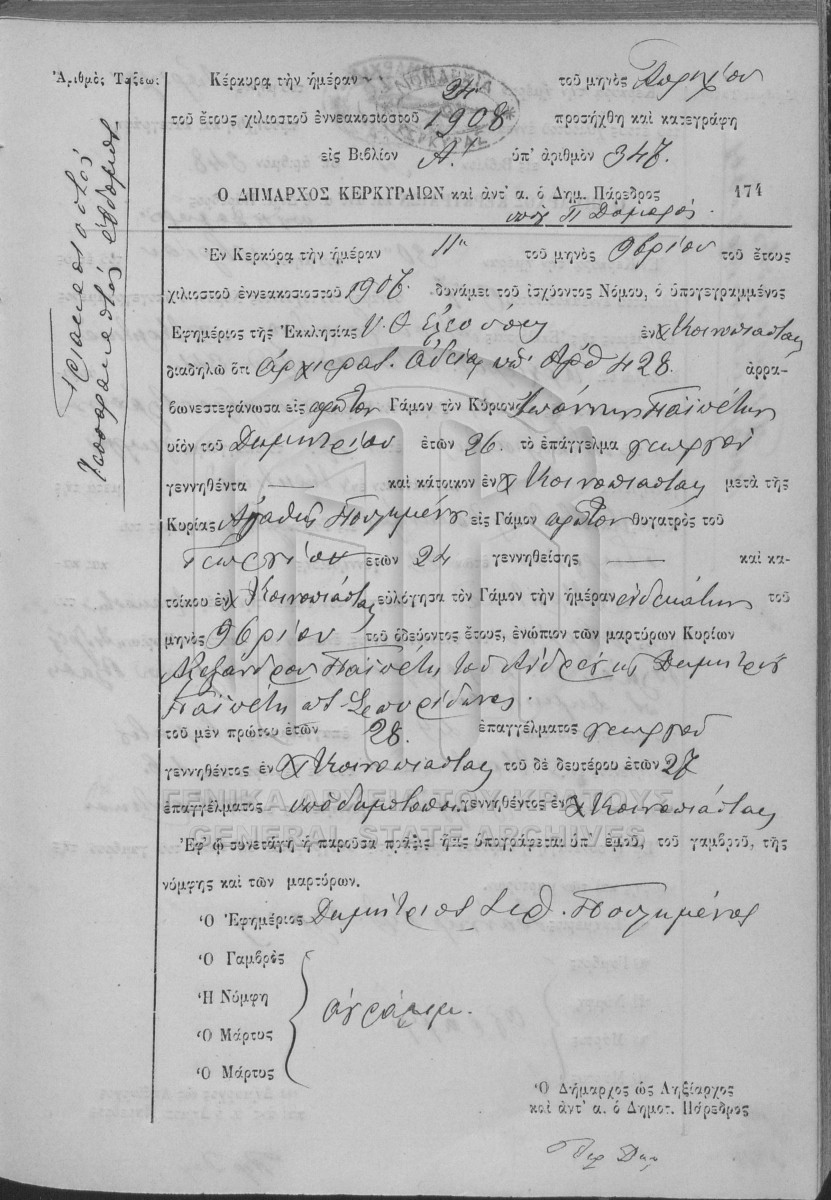 Ἀριθμὸς Τάξεως
Τριακοστὸς
τεσσαρακοστὸς ἕβδομος
Κέρκυρα τὴν ἡμέραν 24 τοῦ μηνὸς Ἀπριλίου
τοῦ ἔτους χιλιοστοῦ ἐννεακοσιοστοῦ 1908 προσήχθη καὶ κατεγράφη
εἰς Βιβλίον Α. ὑπ' ἀριθμὸν 347.
Ο ΔΗΜΑΡΧΟΣ ΚΕΡΚΥΡΑΙΩΝ καὶ ἀντ' α. ὁ Δημ. Πάρεδρος 174
Ἐν Κερκύρᾳ τὴν ἡμέραν 11η τοῦ μηνὸς 9βρίου τοῦ ἔτους
χιλιοστοῦ ἐννεακοσιοστοῦ 1907. δυνάμει τοῦ ἰσχύοντος Νόμου, ὁ ὑπογεγραμμένος
Ἐφημέριος τῆς Ἐκκλησίας Υ. Θ. Ἐλεούσης ἐν χ Κοινοπιάστας
διαδηλῶ ὅτι ἀρχιερατ. ἀδείᾳ ὑπ' ἀριθ 428. ἀρρα-
βωνεστεφάνωσα εἰς πρῶτον Γάμον τὸν Κύριον Ἰωάννην Παϊπέτην
υἱὸν τοῦ Δημητρίου ἐτῶν 26. τὸ ἐπάγγελμα γεωργοῦ
γεννηθέντα — καὶ κάτοικον ἐν χ Κοινοπιάστας μετὰ τῆς
Κυρίας Ἀγάθης Πουλημένου εἰς Γάμον πρῶτον θυγατρὸς τοῦ
Γεωργίου ἐτῶν 24 γεννηθείσης — καὶ κα-
τοίκου ἐν χ Κοινοπιάστας εὐλόγησα τὸν Γάμον τὴν ἡμέραν ἑνδεκάτην τοῦ
μηνὸς 9βρίου τοῦ ὁδεύοντος ἔτους, ἐνώπιον τῶν μαρτύρων Κυρίων
Ἀλεξάνδρου Παϊπέτη τοῦ Ἀνδρέα κ Δημητρίου
Παϊπέτη Σπυρίδωνος.
τοῦ μὲν πρώτου ἐτῶν 28. ἐπαγγέλματος γεωργοῦ
γεννηθέντος ἐν χ Κοινοπιάστας τοῦ δὲ δευτέρου ἐτῶν 27
ἐπαγγέλματος ὑποδηματοποιοῦ γεννηθέντος ἐν χ Κοινοπιάστας
ΓΕΝΙΚΑ ΑΡΧΕΙΑ ΤΟΥ ΚΡΑΤΟΥΣ
GENERAL STATE ARCHIVES
Ἐφ' ᾧ συνετάγη ἡ παροῦσα πρᾶξις ἥτις ὑπογράφεται ὑπ' ἐμοῦ, τοῦ γαμβροῦ, τῆς
νύμφης καὶ τῶν μαρτύρων.
Ὁ Ἐφημέριος Δημήτριος Πουλημένος
Ὁ Γαμβρὸς
Ἡ Νύμφη ἀγράμμ.
Ὁ Μάρτυς
Ὁ Μάρτυς
Ὁ Δήμαρχος ὡς Ληξίαρχος
καὶ ἀντ' α. ὁ Δημοτ. Πάρεδρος